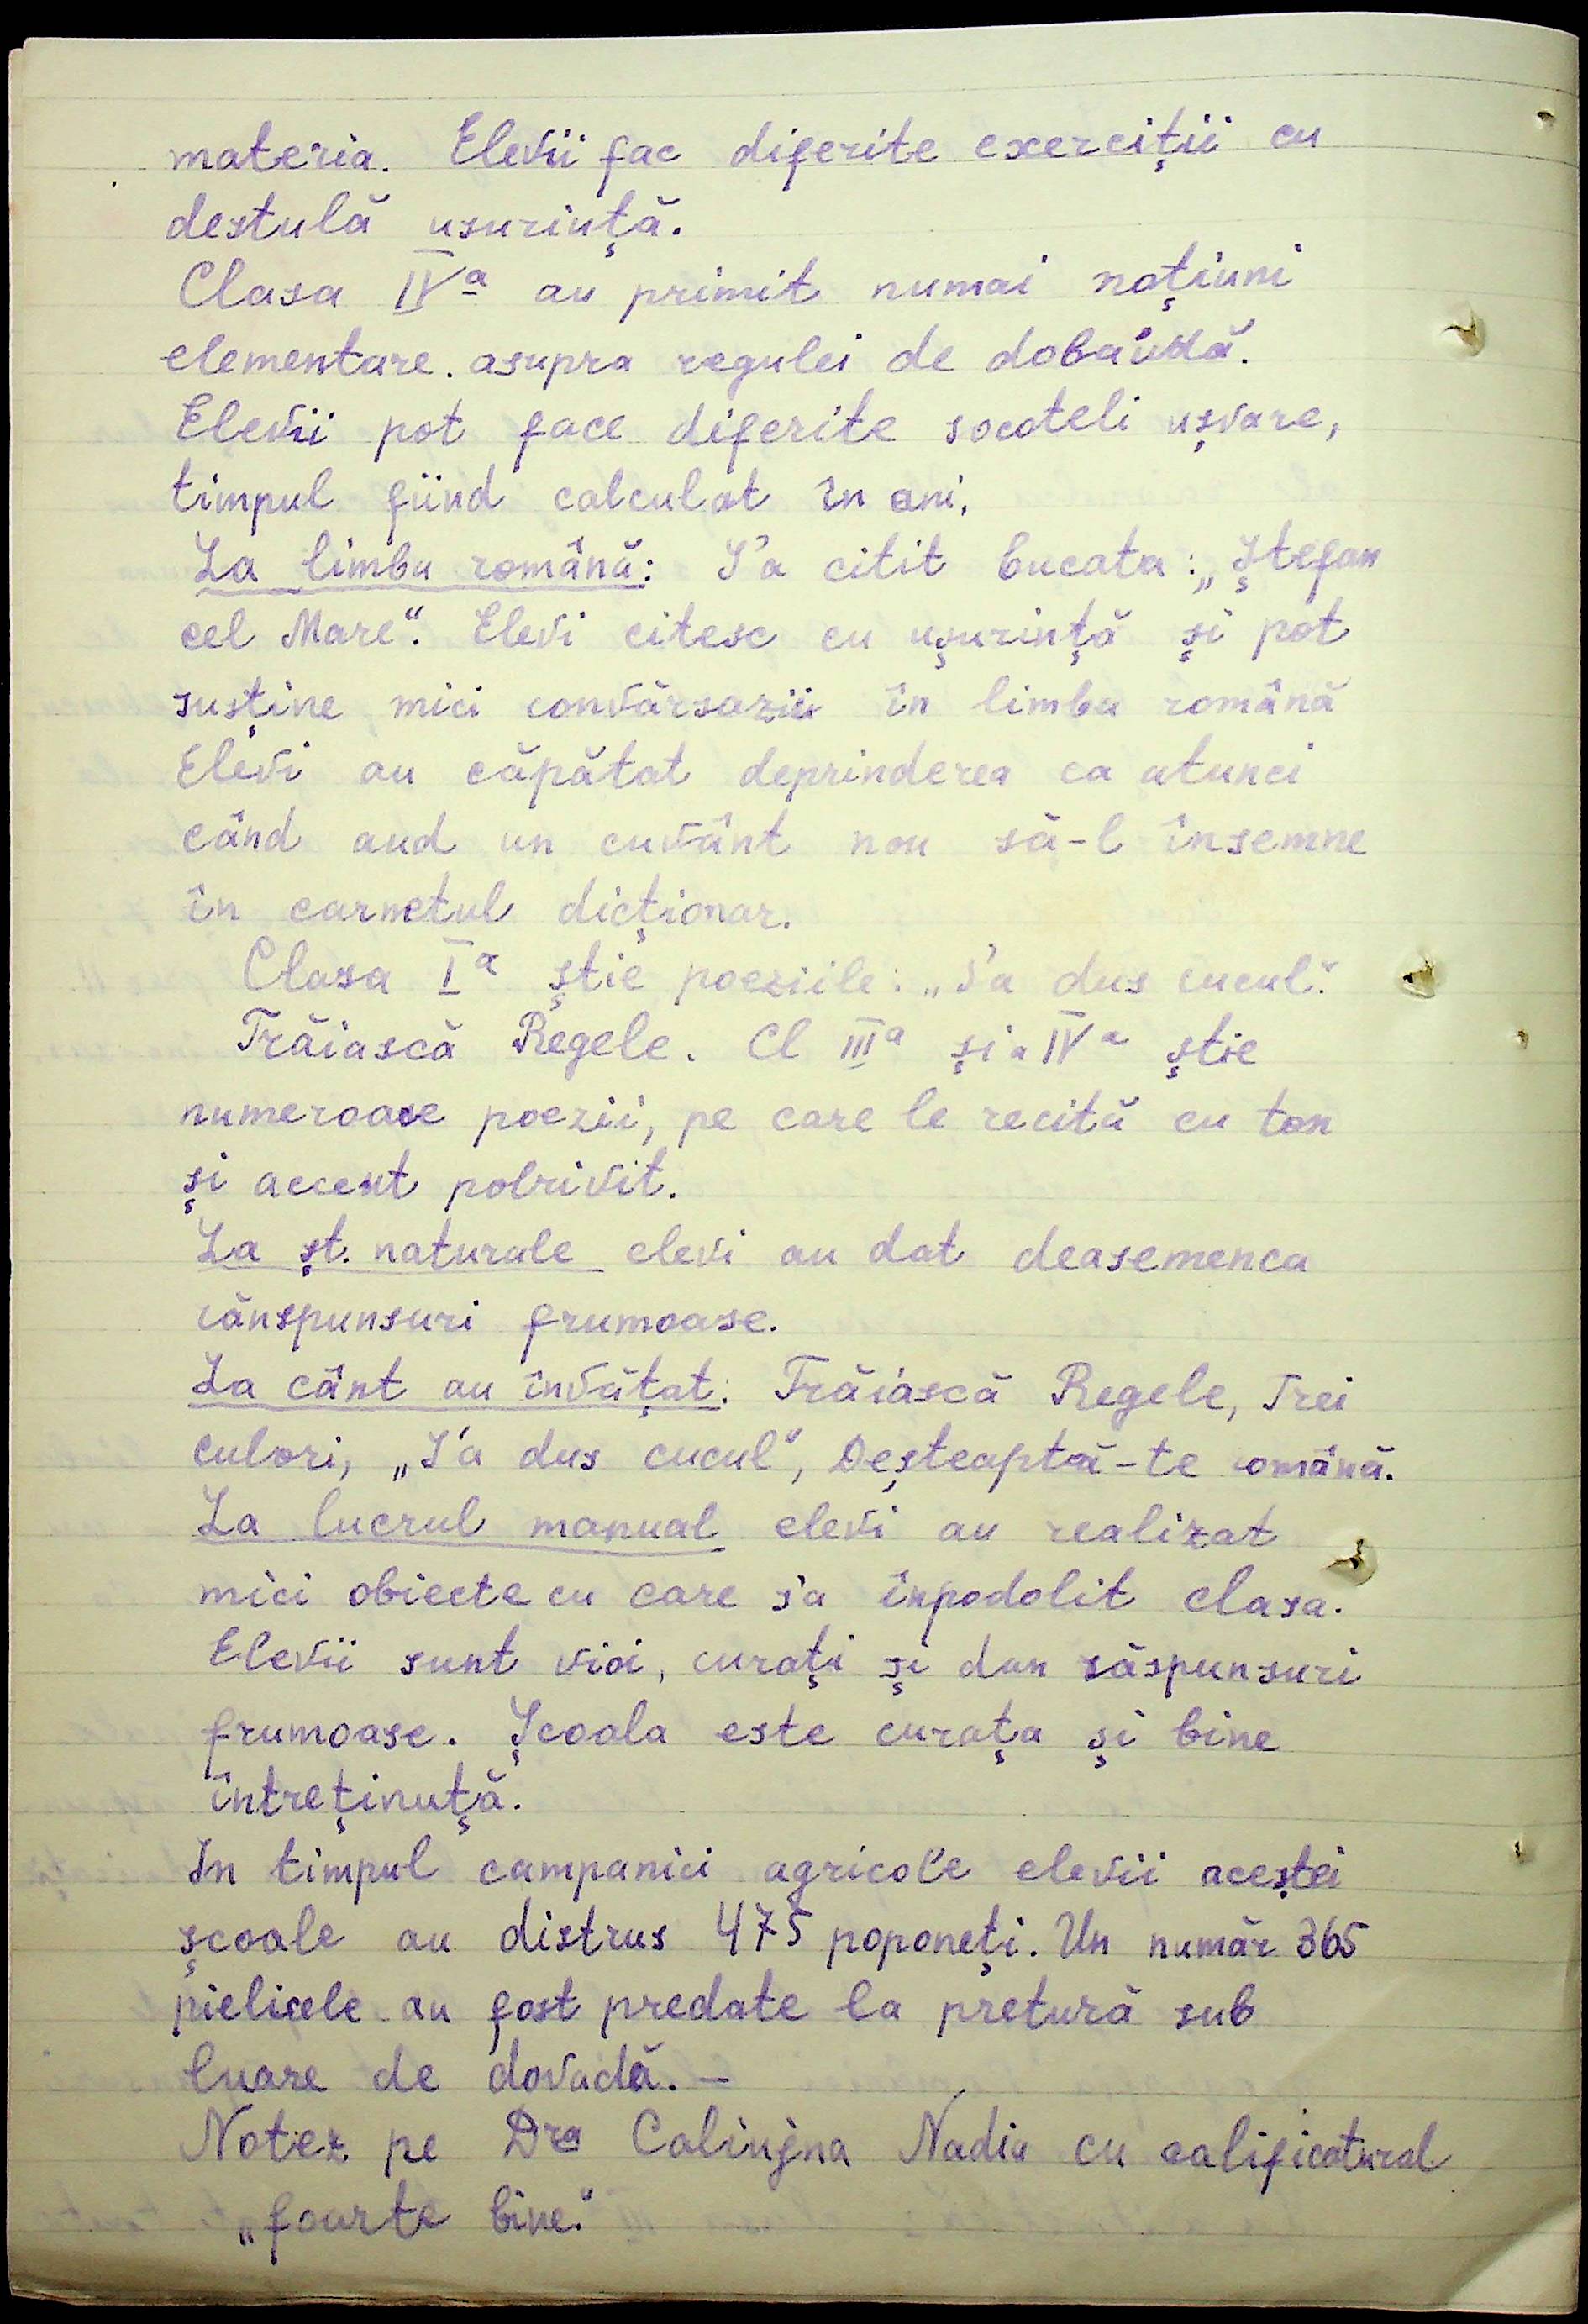 materia. Elevii fac diferite exerciții cu
destulă usurință.
Clasa IVª au primit numai noțiuni
elementare. asupra regulei de dobândă.
Elevii pot face diferite socoteli ușoare,
timpul fiind calculat în ani.
La limba română: S'a citit bucata: „Ștefan
cel Mare". Elevi citesc cu ușurință și pot
susține mici convărsazii în limba română
Elevi au căpătat deprinderea ca atunci
când aud un cuvânt nou să-l însemne
în carnetul dicționar.
Clasa Iª știe poeziile: „S'a dus cucul".
Trăiască Regele. Cl IIIª și a IVª știe
numeroase poezii, pe care le recită cu ton
și accent potrivit.
La șt. naturale elevi au dat deasemenea
rănspunsuri frumoase.
La cânt au învățat: Trăiască Regele, Trei
culori, „S'a dus cucul", Deșteaptă-te română.
La lucrul manual elevi au realizat
mici obiecte cu care s'a înpodolit clasa.
Elevii sunt vioi, curați și dan răspunsuri
frumoase. Școala este curața și bine
întreținuță.
In timpul campanici agricole elevii aceștei
școale au distrus 475 poponeți. Un număr 365
pielicele au fost predate la pretură sub
luare de dovadă. —
Notez pe Dra Calinjna Nadia cu calificatural
„foarte bine."